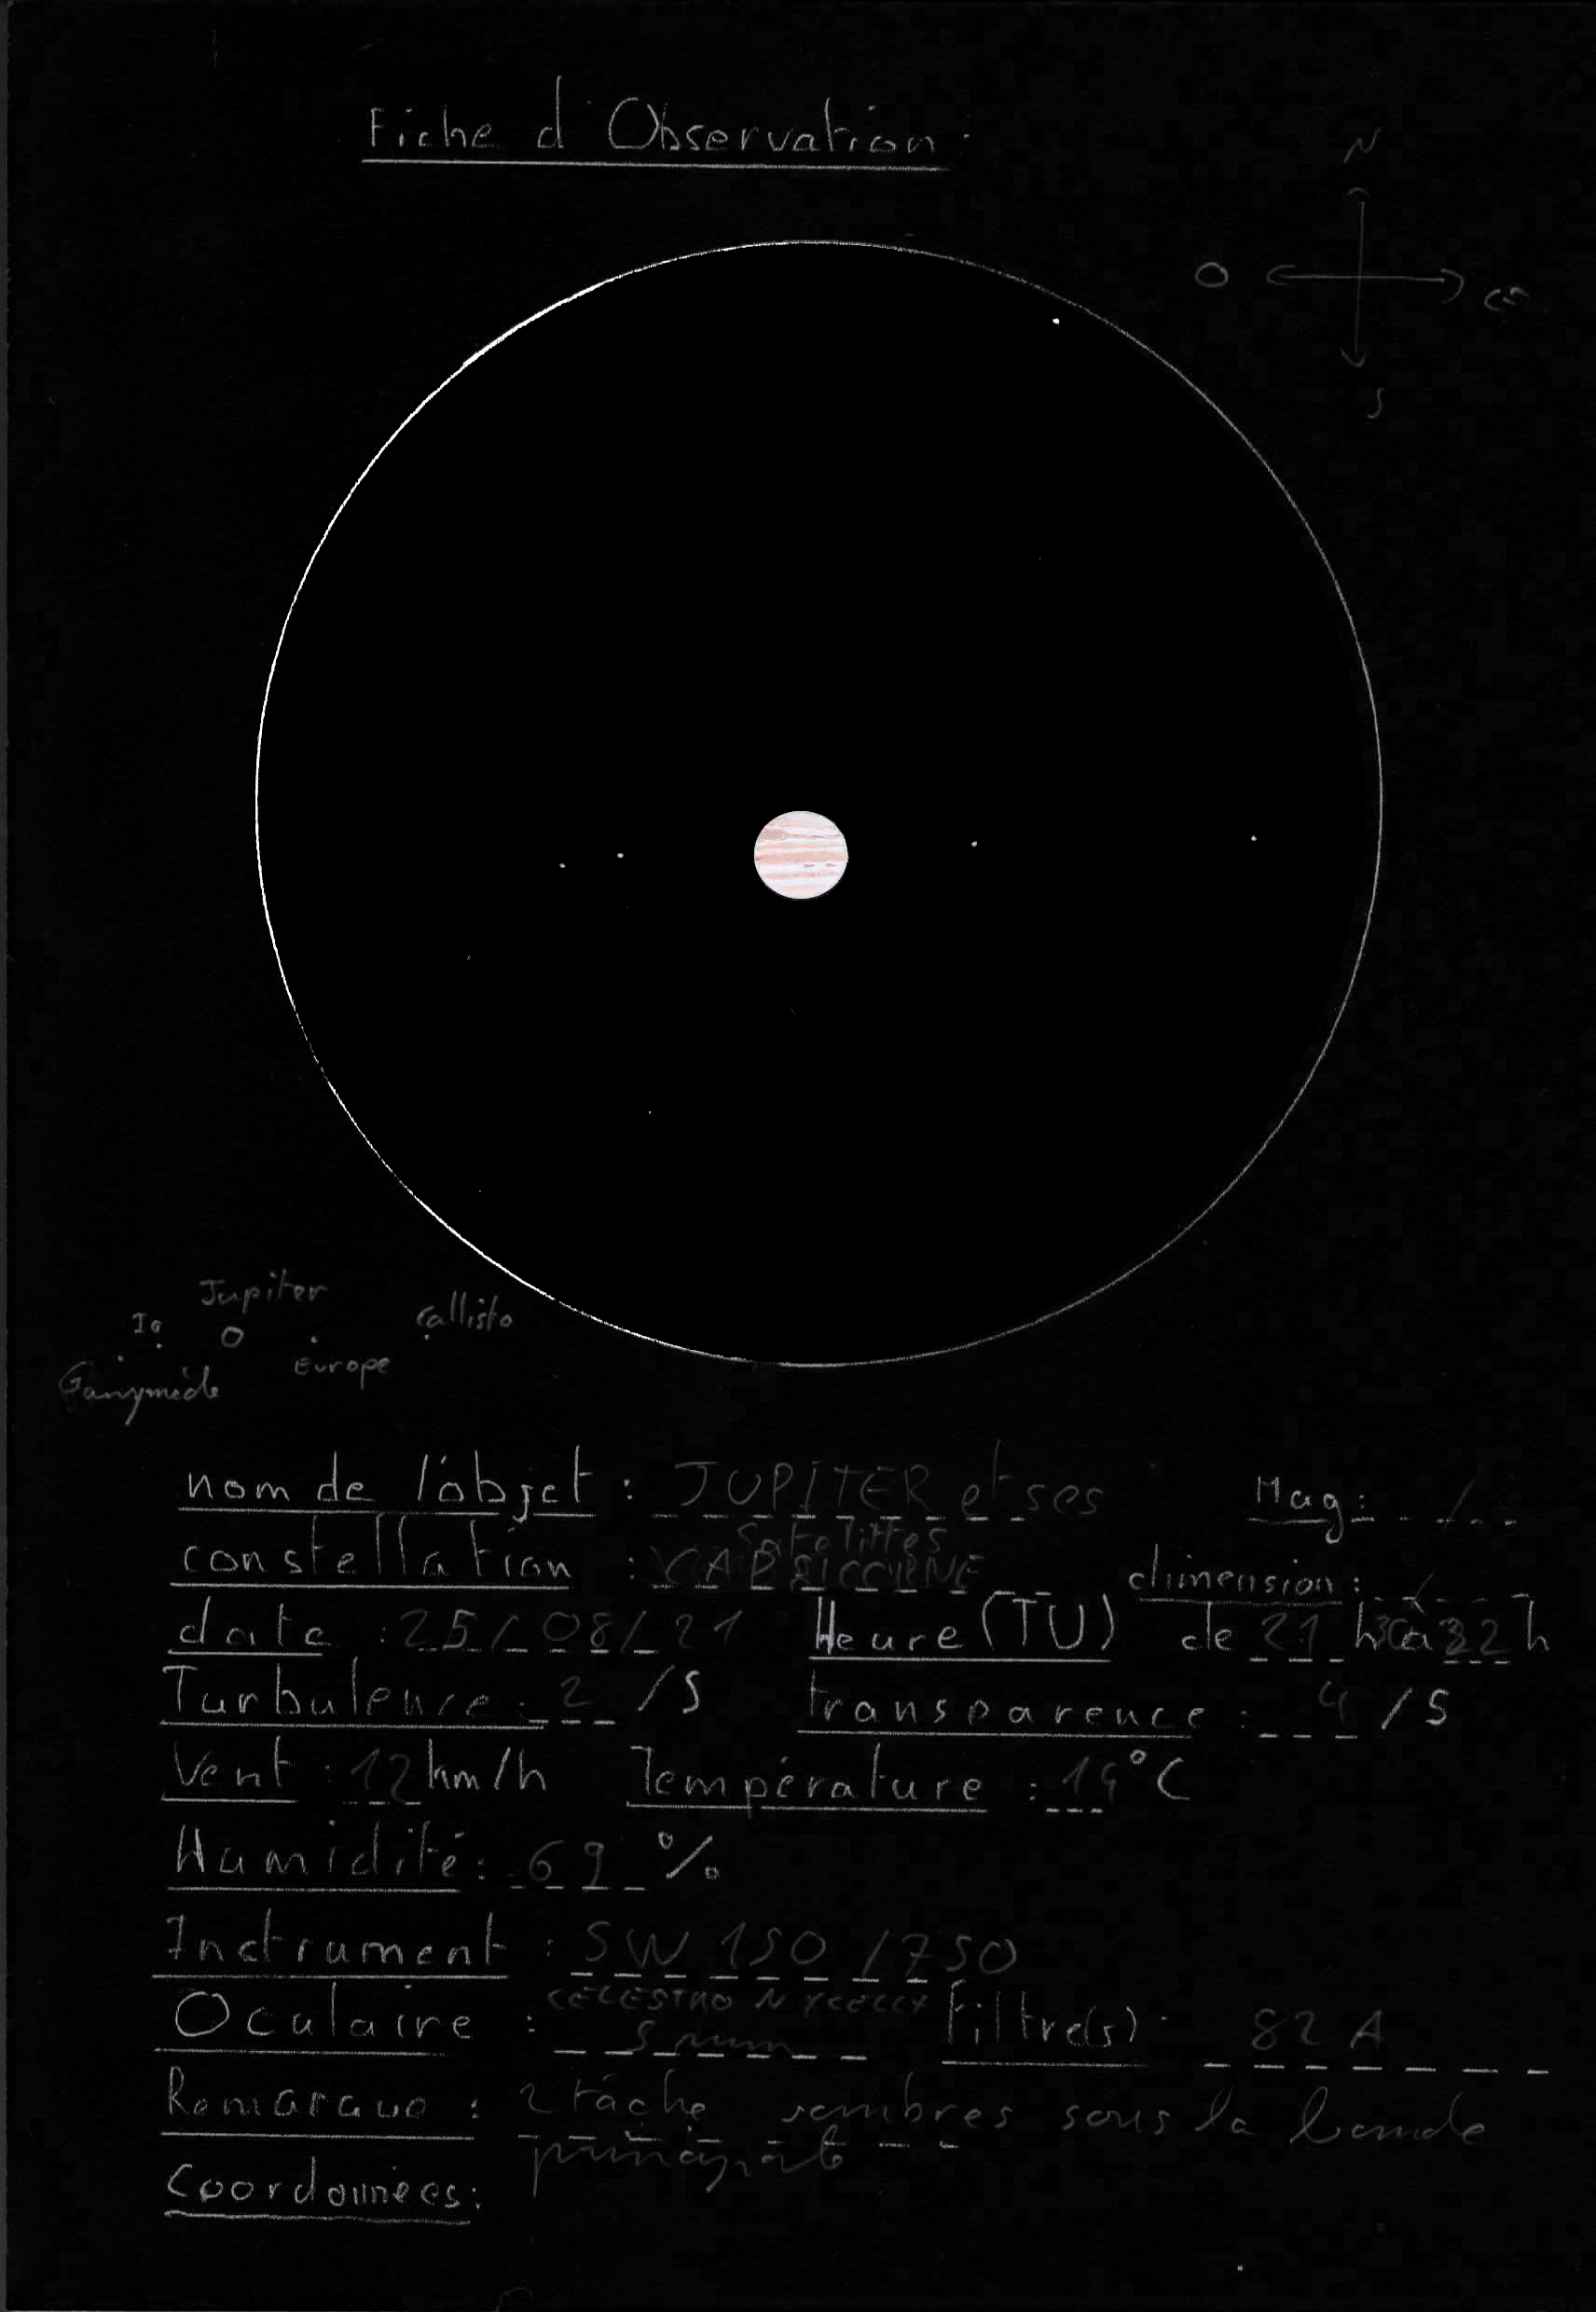 Fiche d'Observation.
N
O
S
Jupiter
Io
Callisto
Europe
Ganymède
nom de l'objet : JUPITER et ses Mag: /
Satelittes
constellation : CAPRICORNE dimension: /
date : 25/08/21 Heure (TU) de 21 h30 à 22 h
Turbulence: 2 /5 transparence : 4 /5
Vent : 12 km/h Température : °C
Humidité: 69 %
Instrument : SW 150/750
Oculaire : CELESTRON mm Filtre(s): 82 A
Remarque : 2 tâche sombres sous la bande
principale
Coordonnées: